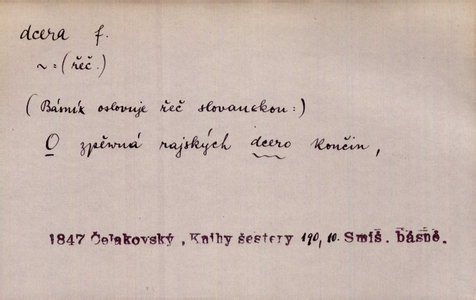 dcera f.
~ = (řeč.)
(Básník oslovuje řeč slovanskou:)
O zpěwná rajských dcero končin,
1847 Čelakovský, Knihy šestery 190, 10. Smíš. básně.